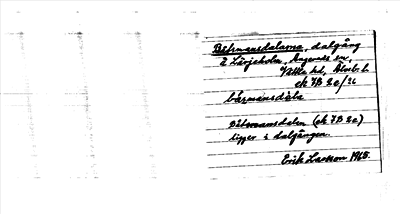 Båtsmansdalarna, dalgång
2 Lärjeholm, Angereds sn,
Vättle hd, Älvsb. l.
ek 7B 2e/26
båsmansdala
Båtsmansdalen (ek 7B 2e)
ligger i dalgången.
Erik Larsson 1968.